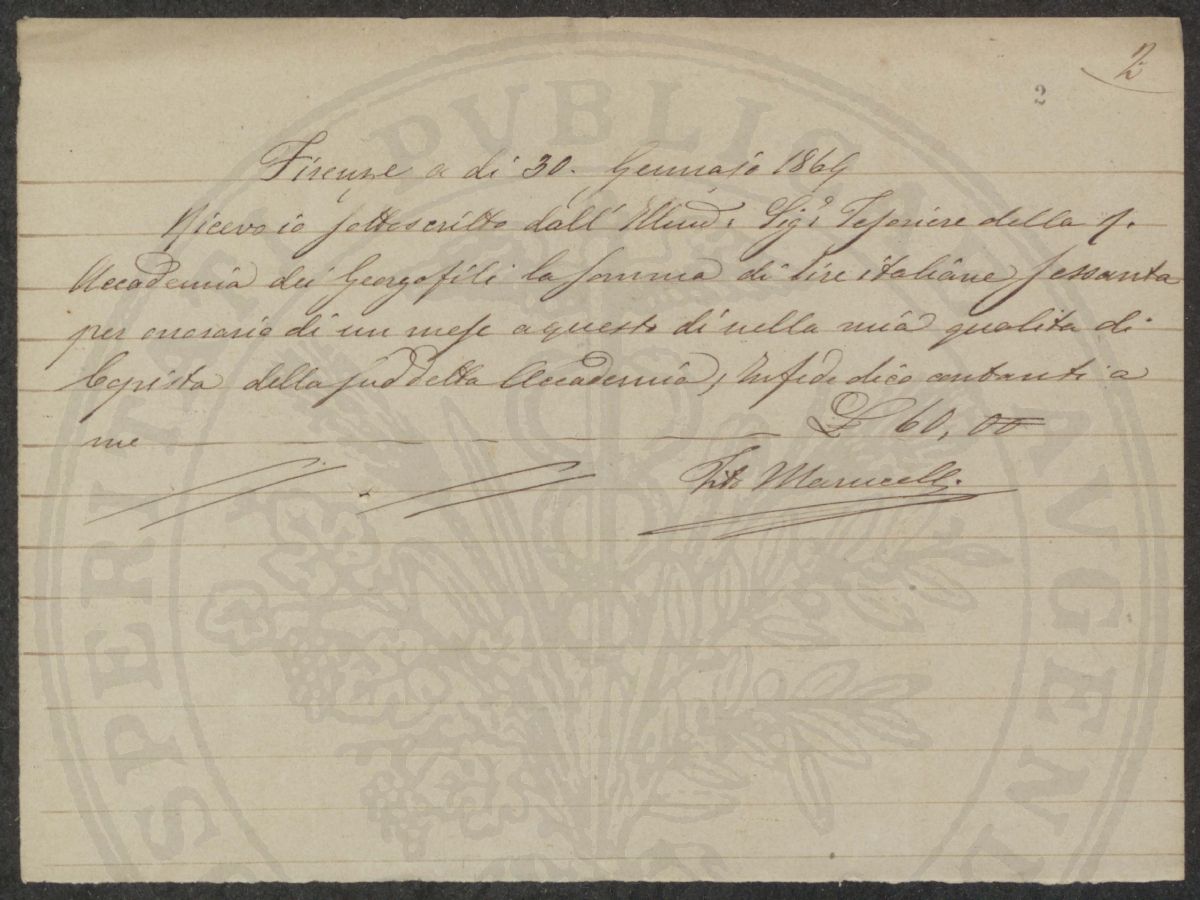 2
2
Firenze a di 30. Gennajo 1869
Ricevo io sottoscritto dall' Sig.r Tesoriere della R.
Accademia dei Georgofili la somma di Lire italiane sessanta
per onorario di un mese a questo di nella mia qualita di
Copista della suddetta Accademia, Infede dico contanti a
me £ 60, 00
Tito Marucelli
PROSPERITATI PUBLICAE AUGENDAE